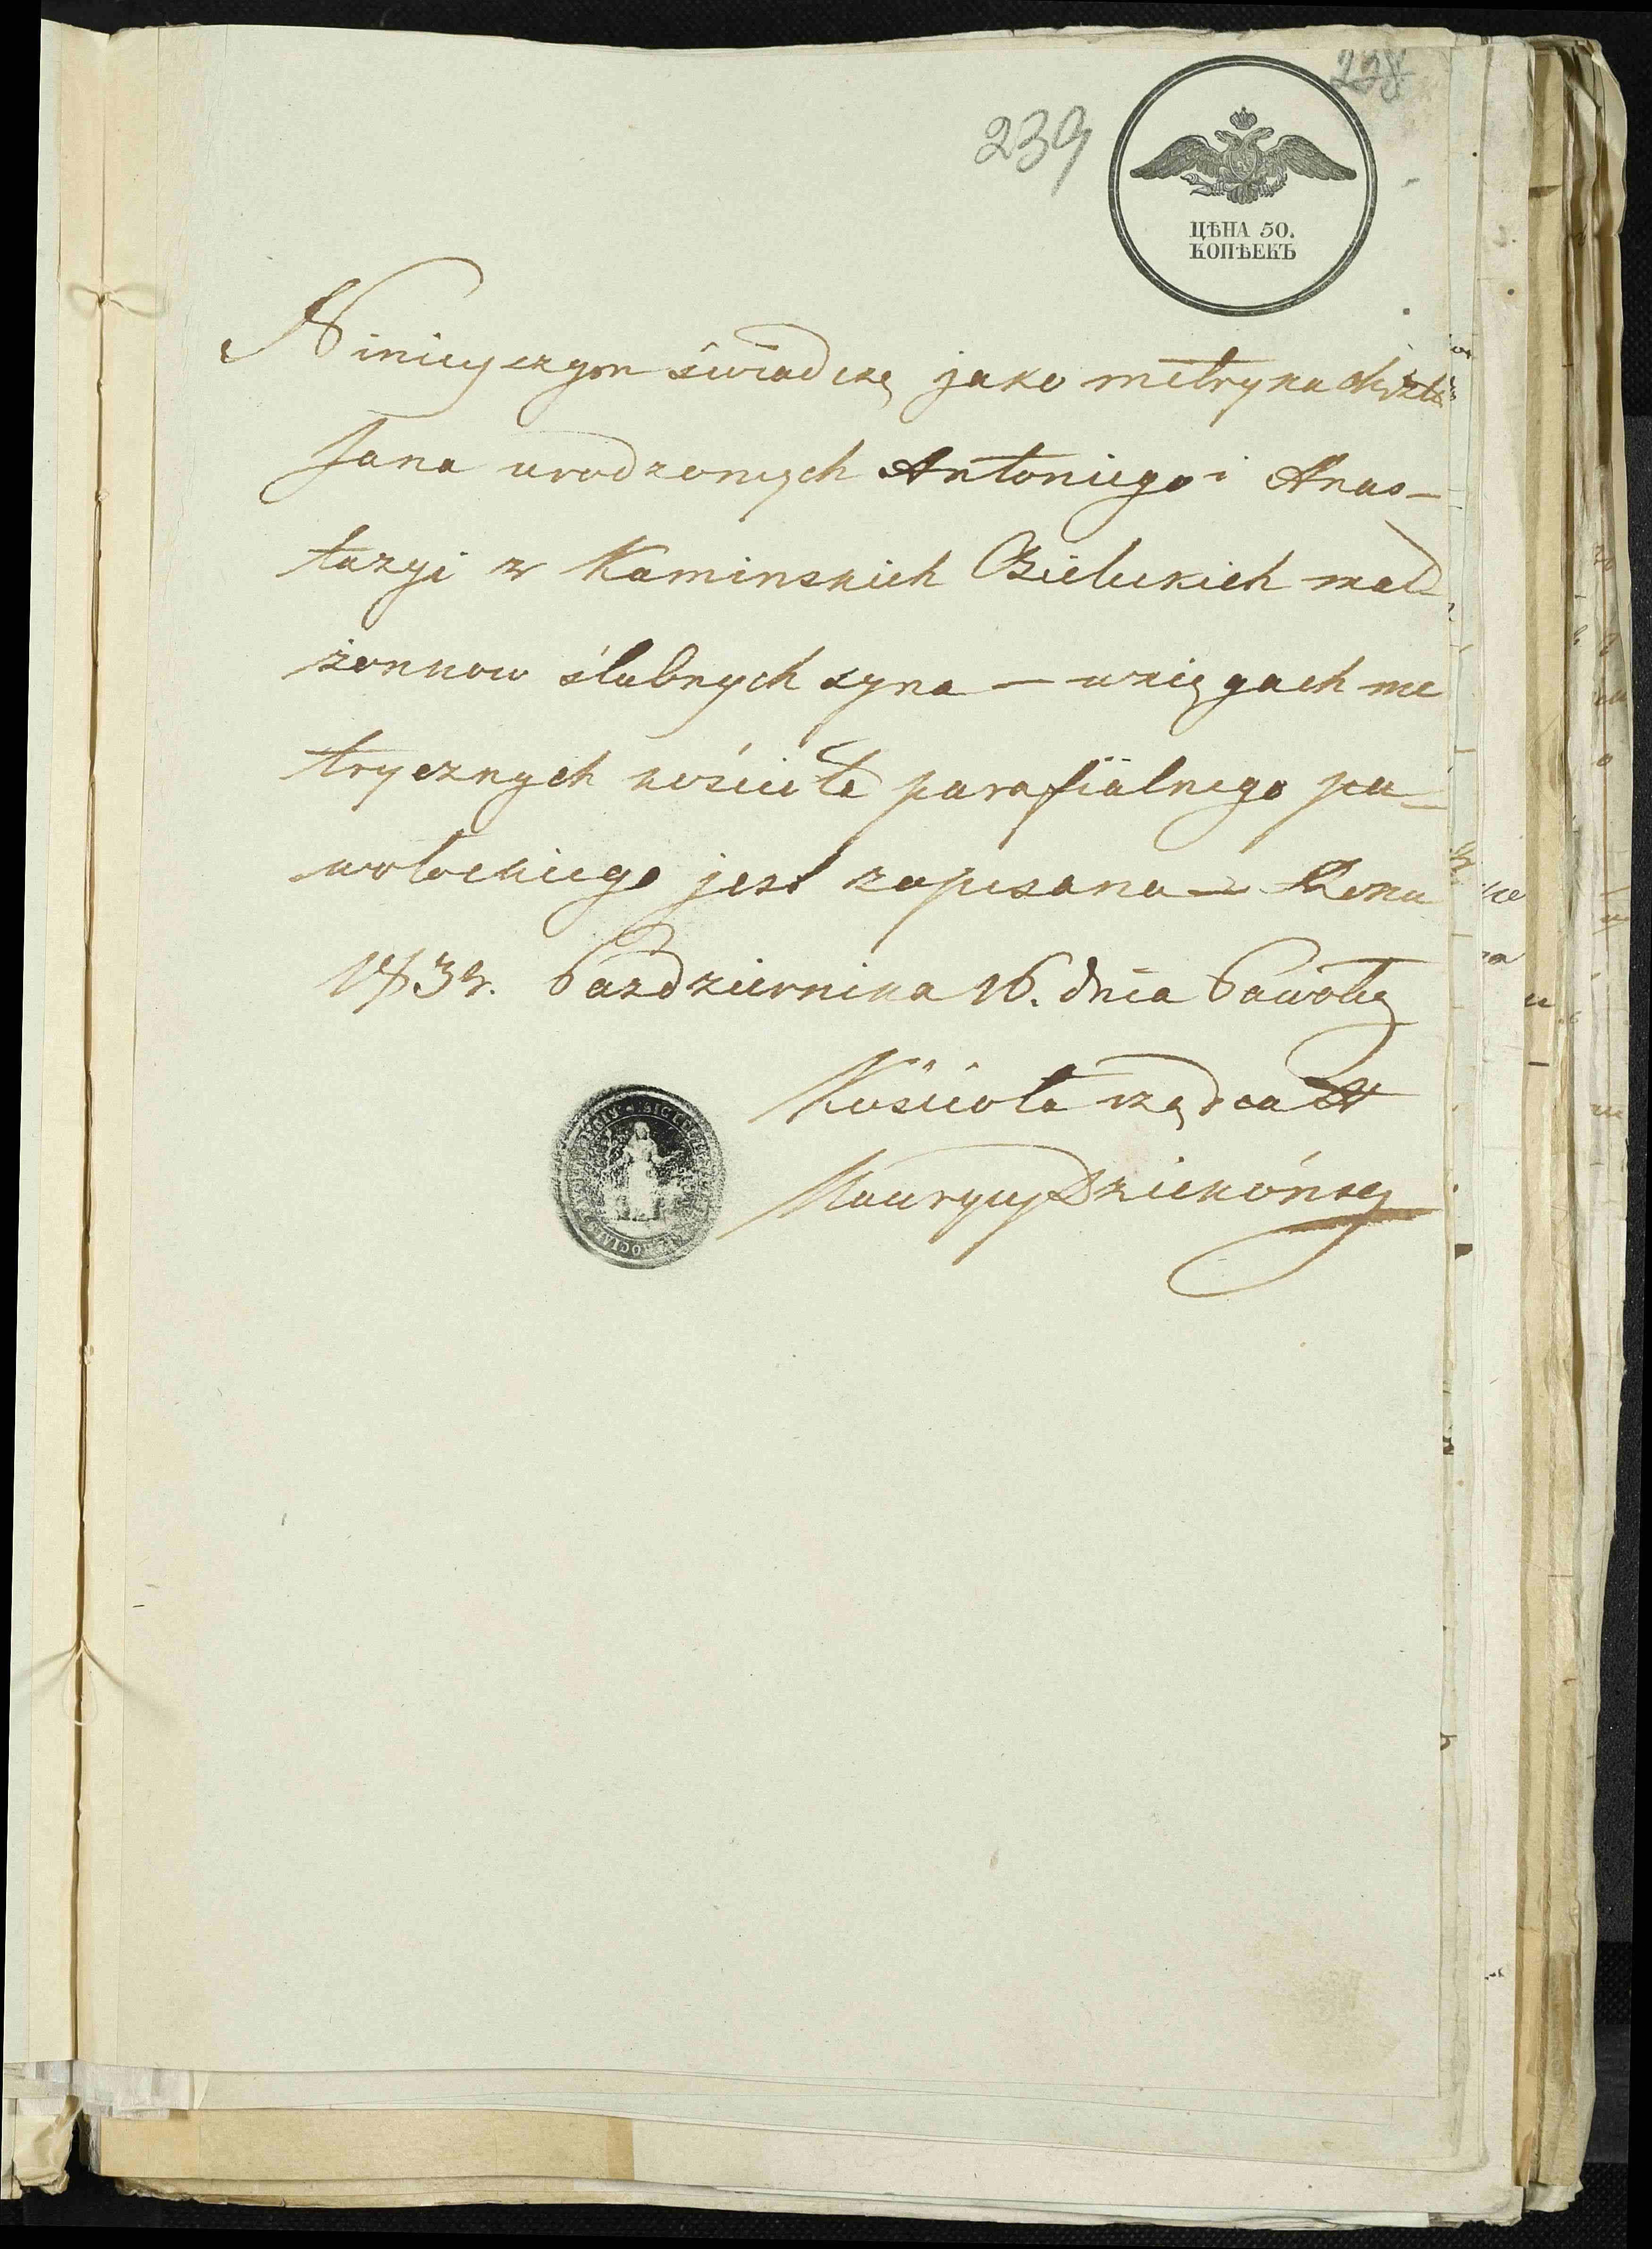 228
239
ЦѢНА 50.
КОПѢЕКЪ
Ninieyszym świadczę jako metryka chrztu
Jana urodzonych Antoniego i Anas-
tazyi z Kaminskich Bieluckich mał-
żonkow ślubnych syna — w xięgach me
trycznych kościoła parafialnego pa-
wołockiego jest zapisana — Roku
183 . Pazdziernika 16. dnia Pawołoy
Kościoła rządca X
Maurycy Dziekóński